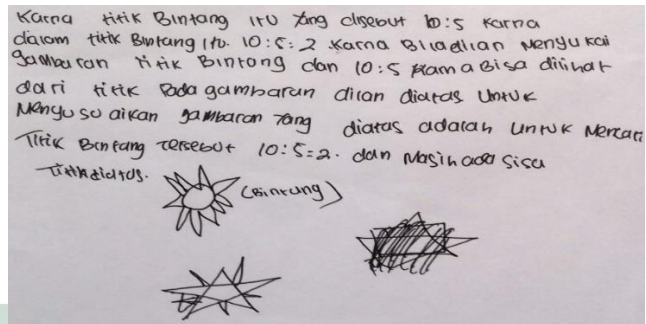 Karna titik Bintang itu yang disebut 10:5 karna
dalam titik Bintang itu. 10:5=2 karna Bila dilian Menyukai
gambaran titik Bintang dan 10:5 karna Bisa dilihat
dari titik Pada gambaran dilan diatas Untuk
Menyusuaikan gambaran yang diatas adalah untuk Mencari
Titik Bintang tersebut 10:5=2. dan Masih ada Sisa
titik diatas.
(Bintang)